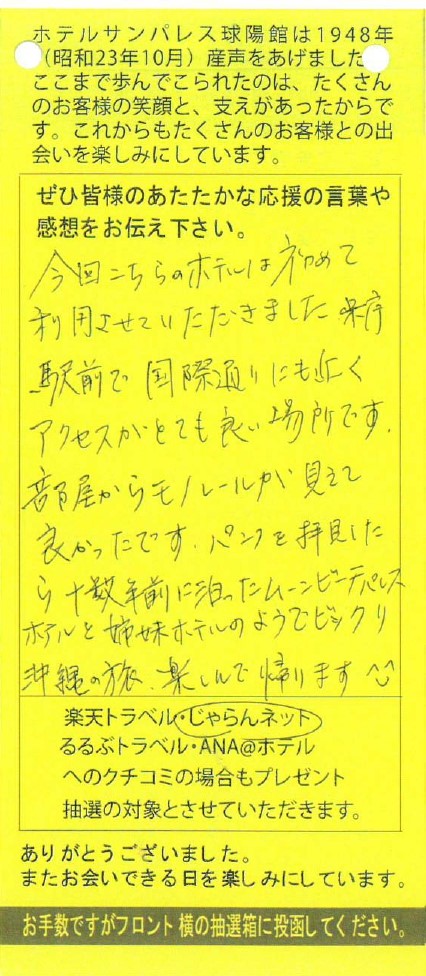 ホテルサンパレス球陽館は1948年
(昭和23年10月)産声をあげました
ここまで歩んでこられたのは、たくさん
のお客様の笑顔と、支えがあったからで
す。これからもたくさんのお客様との出
会いを楽しみにしています。
ぜひ皆様のあたたかな応援の言葉や
感想をお伝え下さい。
今回こちらのホテルは初めて
利用させていただきました。県庁
駅前で国際通りにも近く
アクセスがとても良い場所です。
部屋からモノレールが見えて
良かったです。パンフを拝見した
ら十数年前に泊ったムーンビーチパレス
ホテルと姉妹ホテルのようでビックリ
沖縄の旅、楽しんで帰ります
楽天トラベル・じゃらんネット
るるぶトラベル・ANA@ホテル
へのクチコミの場合もプレゼント
抽選の対象とさせていただきます。
ありがとうございました。
またお会いできる日を楽しみにしています。
お手数ですがフロント横の抽選箱に投函してください。